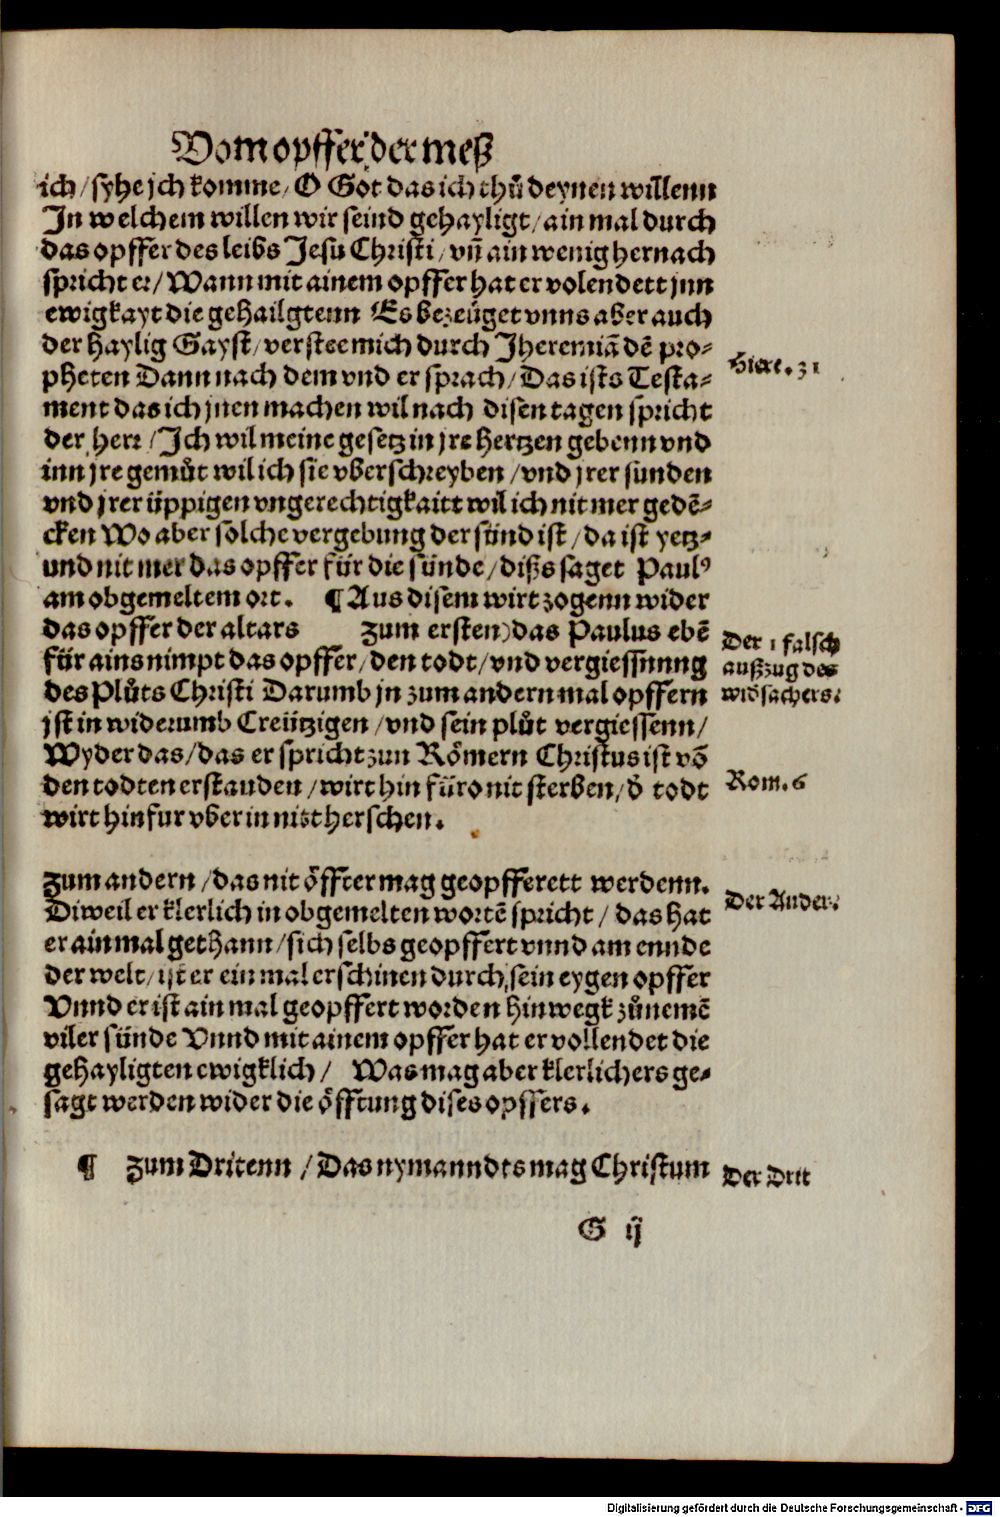 Vom opffer der meß
ich / syhe jch komme / O Got das ich thů deynen willenn
In welchem willen wir seind gehayligt / ain mal durch
das opffer des leibs Jesu Christi / vn̄ ain wenig hernach
spricht er / Wann mit ainem opffer hat er volendett jnn
ewigkayt die gehailgtenn Es bezeüget vnns aber auch
der haylig Gayst / verstee mich durch Jheremiā dē pro⸗
pheten Dann nach dem vnd er sprach / Das ists Testa⸗
ment das ich jnen machen wil nach disen tagen spricht
der herr / Ich wil meine gesetz in jre hertzen gebenn vnd
inn jre gemůt wil ich sie vberschreyben / vnd jrer sünden
vnd jrer üppigen vngerechtigkaitt wil ich nit mer gedē⸗
cken Wo aber solche vergebung der sünd ist / da ist yetz⸗
und nit mer das opffer für die sünde / dißs saget Paulꝰ
am obgemeltem ort. ¶ Aus disem wirt zogenn wider
das opffer der altars zum ersten) das Paulus ebē
für ains nimpt das opffer / den todt / vnd vergiessnnng
des Plůts Christi Darumb jn zum andern mal opffern
jst in widerumb Creützigen / vnd sein plůt vergiessenn /
Wyder das / das er spricht zun Römern Christus ist vō
den todten erstanden / wirt hin füro nit sterben / d̄ todt
wirt hinfur vber in nit herschen.
zum andern / das nit öffter mag geopfferett werdenn.
Diweil er klerlich in obgemelten wortē spricht / das hat
er ainmal gethann / sich selbs geopffert vnnd am ennde
der welt / ist er ein mal erschinen durch sein eygen opffer
Vnnd er ist ain mal geopffert worden hinwegk zůnemē
viler sünde Vnnd mit ainem opffer hat er vollendet die
gehayligten ewigklich / Was mag aber klerlichers ge⸗
sagt werden wider die öfftung dises opffers.
¶ zum Dritenn / Das nymanndes mag Christum
G ij
Hiere. 31
Der 1 falsch
außzug des
widsachers.
Rom. 6
Der Ander.
Der Drit
Digitalisierung gefördert durch die Deutsche Forschungsgemeinschaft - DFG